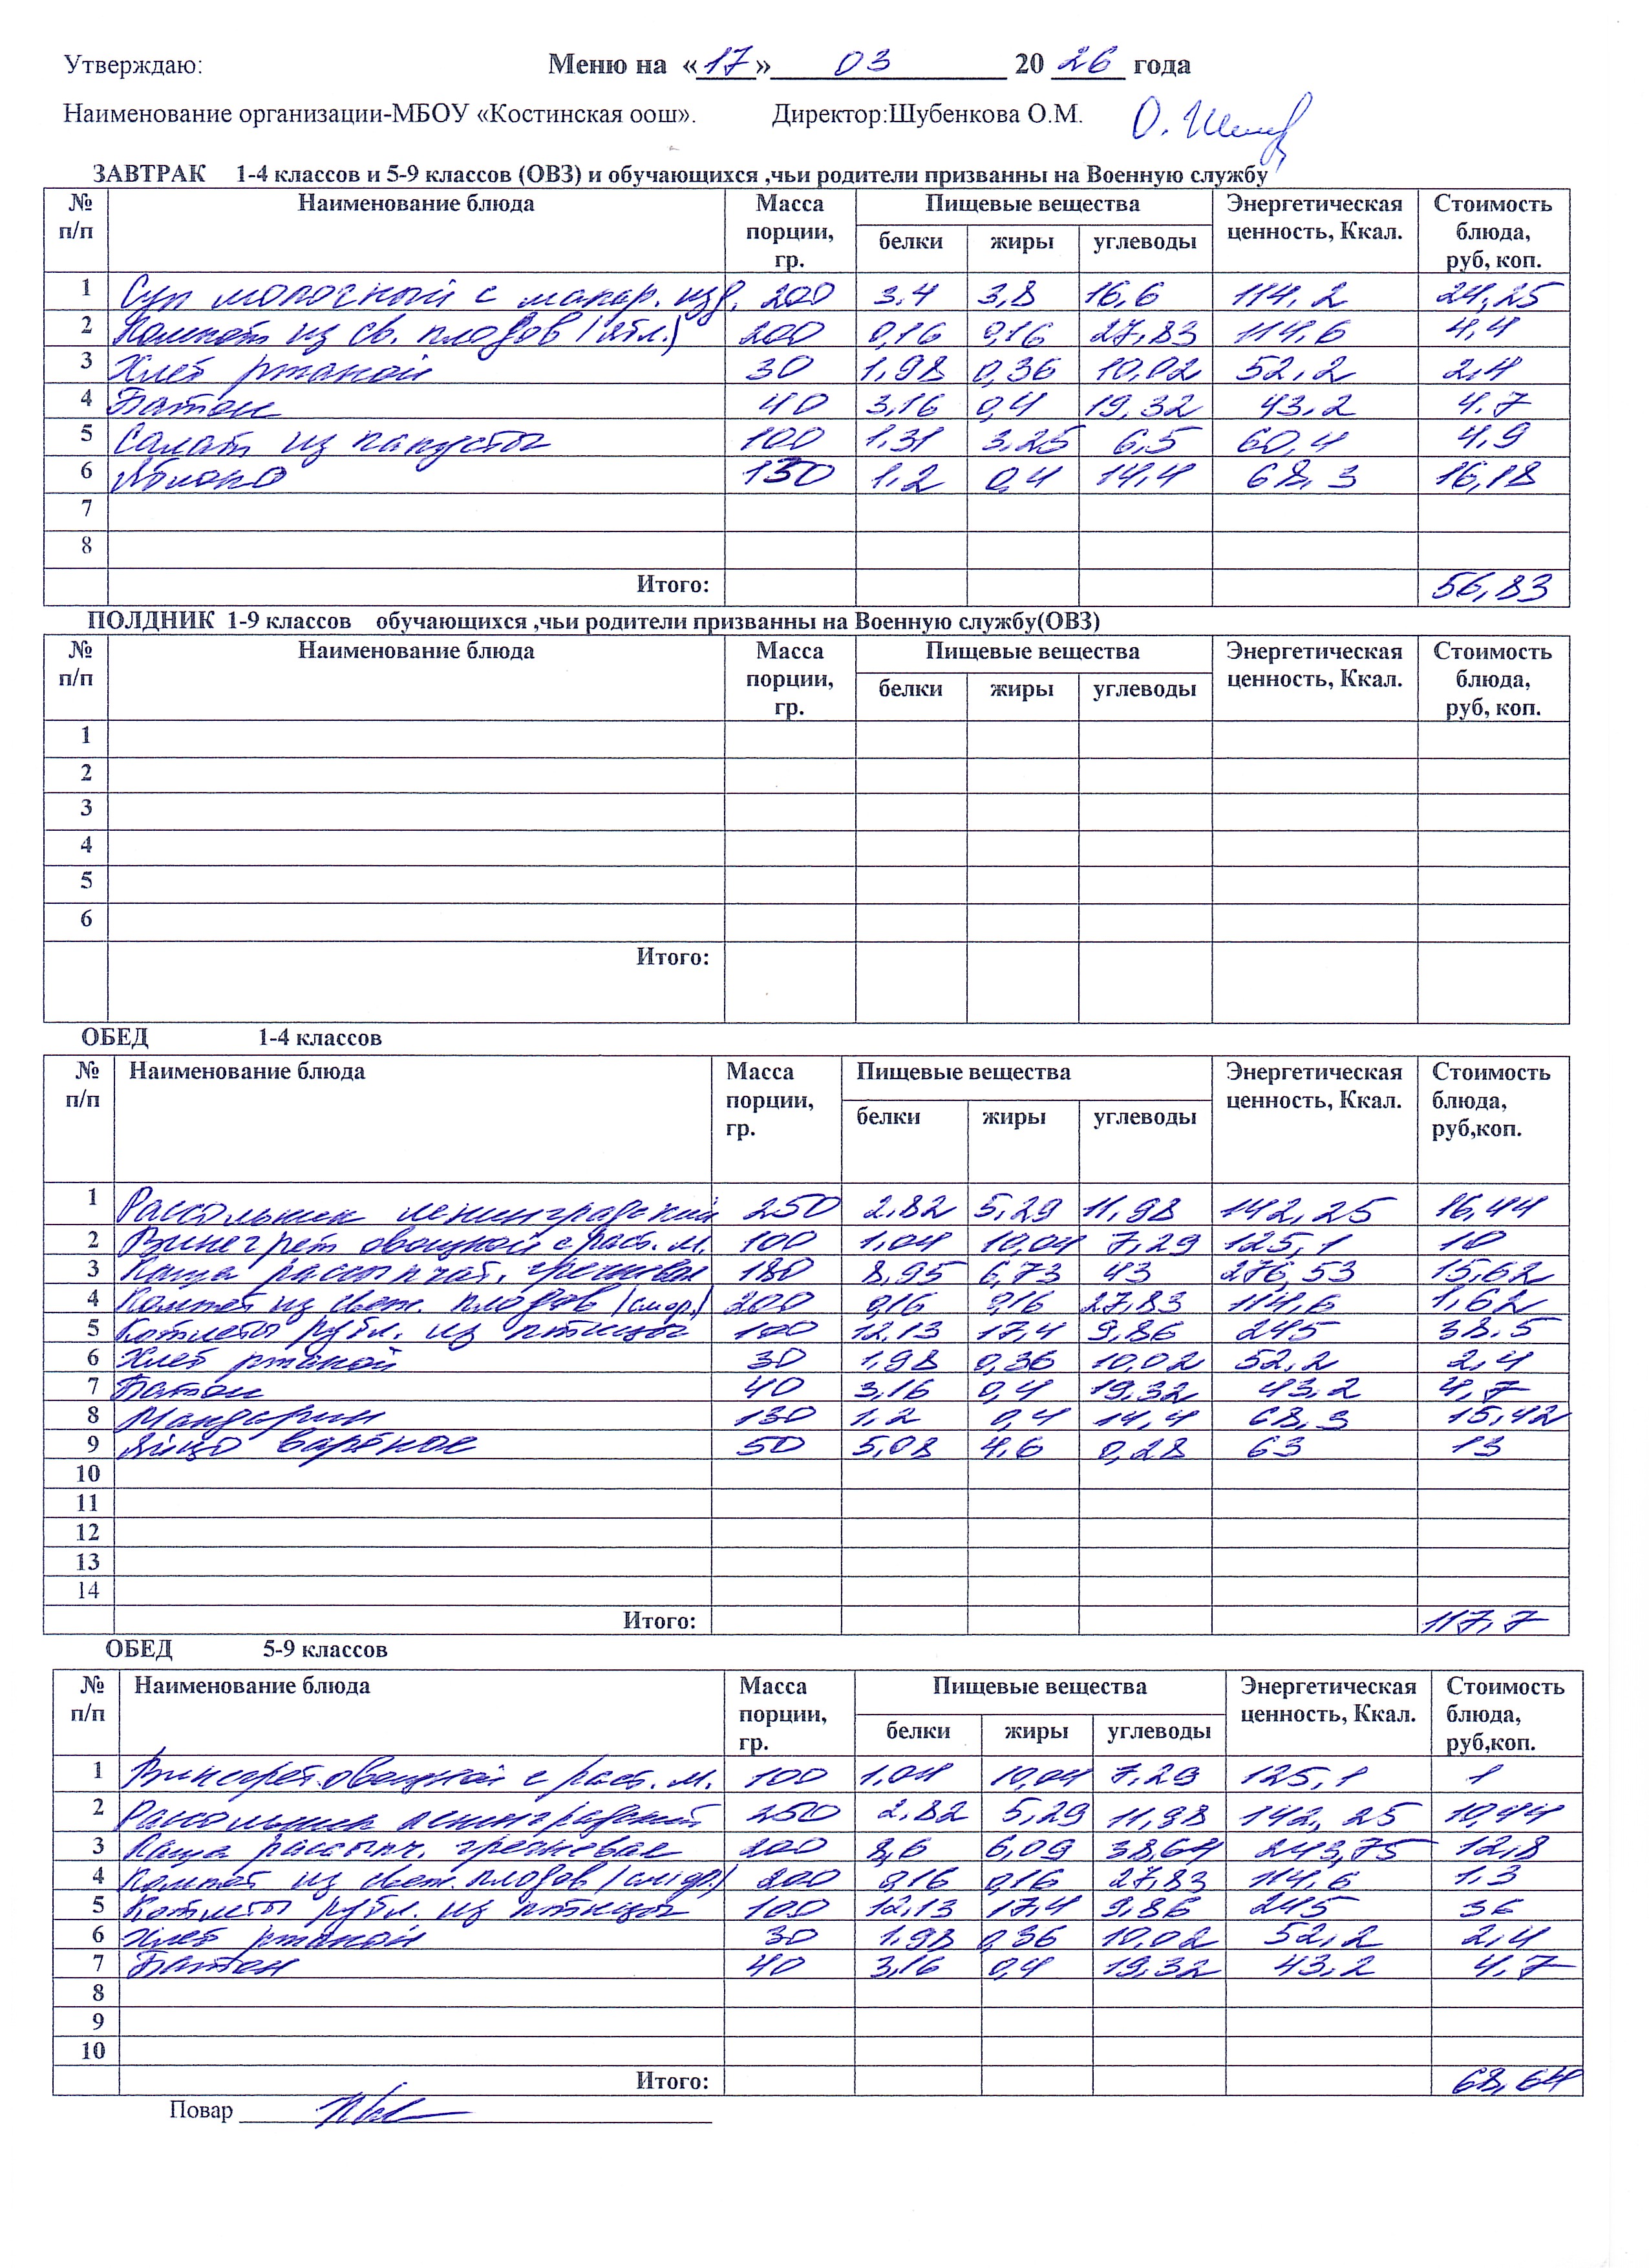 Утверждаю: Меню на «17» 03 20 26 года
Наименование организации-МБОУ «Костинская оош». Директор:Шубенкова О.М.
ЗАВТРАК 1-4 классов и 5-9 классов (ОВЗ) и обучающихся ,чьи родители призванны на Военную службу
№ п/п Наименование блюда Масса порции, гр. Пищевые вещества Энергетическая ценность, Ккал. Стоимость блюда, руб, коп.
белки жиры углеводы
1 Суп молочный с макар. изд. 200 3,4 3,8 16,6 114,2 24,25
2 Компот из св. плодов (ябл.) 200 0,16 0,16 27,83 114,6 4,4
3 Хлеб ржаной 30 1,98 0,36 10,02 52,2 2,4
4 Батон 40 3,16 0,4 19,32 43,2 4,7
5 Салат из капусты 100 1,31 3,25 6,5 60,4 4,9
6 Яблоко 130 1,2 0,4 14,4 68,3 16,18
7
8
Итого: 56,83
ПОЛДНИК 1-9 классов обучающихся ,чьи родители призванны на Военную службу(ОВЗ)
№ п/п Наименование блюда Масса порции, гр. Пищевые вещества Энергетическая ценность, Ккал. Стоимость блюда, руб, коп.
белки жиры углеводы
1
2
3
4
5
6
Итого:
ОБЕД 1-4 классов
№ п/п Наименование блюда Масса порции, гр. Пищевые вещества Энергетическая ценность, Ккал. Стоимость блюда, руб,коп.
белки жиры углеводы
1 Рассольник ленинградский 250 2,82 5,29 11,98 142,25 16,44
2 Винегрет овощной с раст. м. 100 1,04 10,04 7,29 125,1 10
3 Каша рассыпчат. гречневая 180 8,95 6,73 43 276,53 15,62
4 Компот из свеж. плодов (смор.) 200 0,16 0,16 27,83 114,6 1,62
5 Котлеты рубл. из птицы 100 12,13 17,4 9,86 245 38,5
6 Хлеб ржаной 30 1,98 0,36 10,02 52,2 2,4
7 Батон 40 3,16 0,4 19,32 43,2 4,7
8 Мандарин 130 1,2 0,4 14,4 68,3 15,42
9 Яйцо варёное 50 5,08 4,6 0,28 63 13
10
11
12
13
14
Итого: 117,7
ОБЕД 5-9 классов
№ п/п Наименование блюда Масса порции, гр. Пищевые вещества Энергетическая ценность, Ккал. Стоимость блюда, руб,коп.
белки жиры углеводы
1 Винегрет овощной с раст. м. 100 1,04 10,04 7,29 125,1 1
2 Рассольник ленинградский 250 2,82 5,29 11,98 142,25 10,44
3 Каша рассыпч. гречневая 200 8,6 6,09 38,64 243,75 12,8
4 Компот из свеж. плодов (смор.) 200 0,16 0,16 27,83 114,6 1,3
5 Котлеты рубл. из птицы 100 12,13 17,4 9,86 245 36
6 Хлеб ржаной 30 1,98 0,36 10,02 52,2 2,4
7 Батон 40 3,16 0,4 19,32 43,2 4,7
8
9
10
Итого: 68,64
Повар